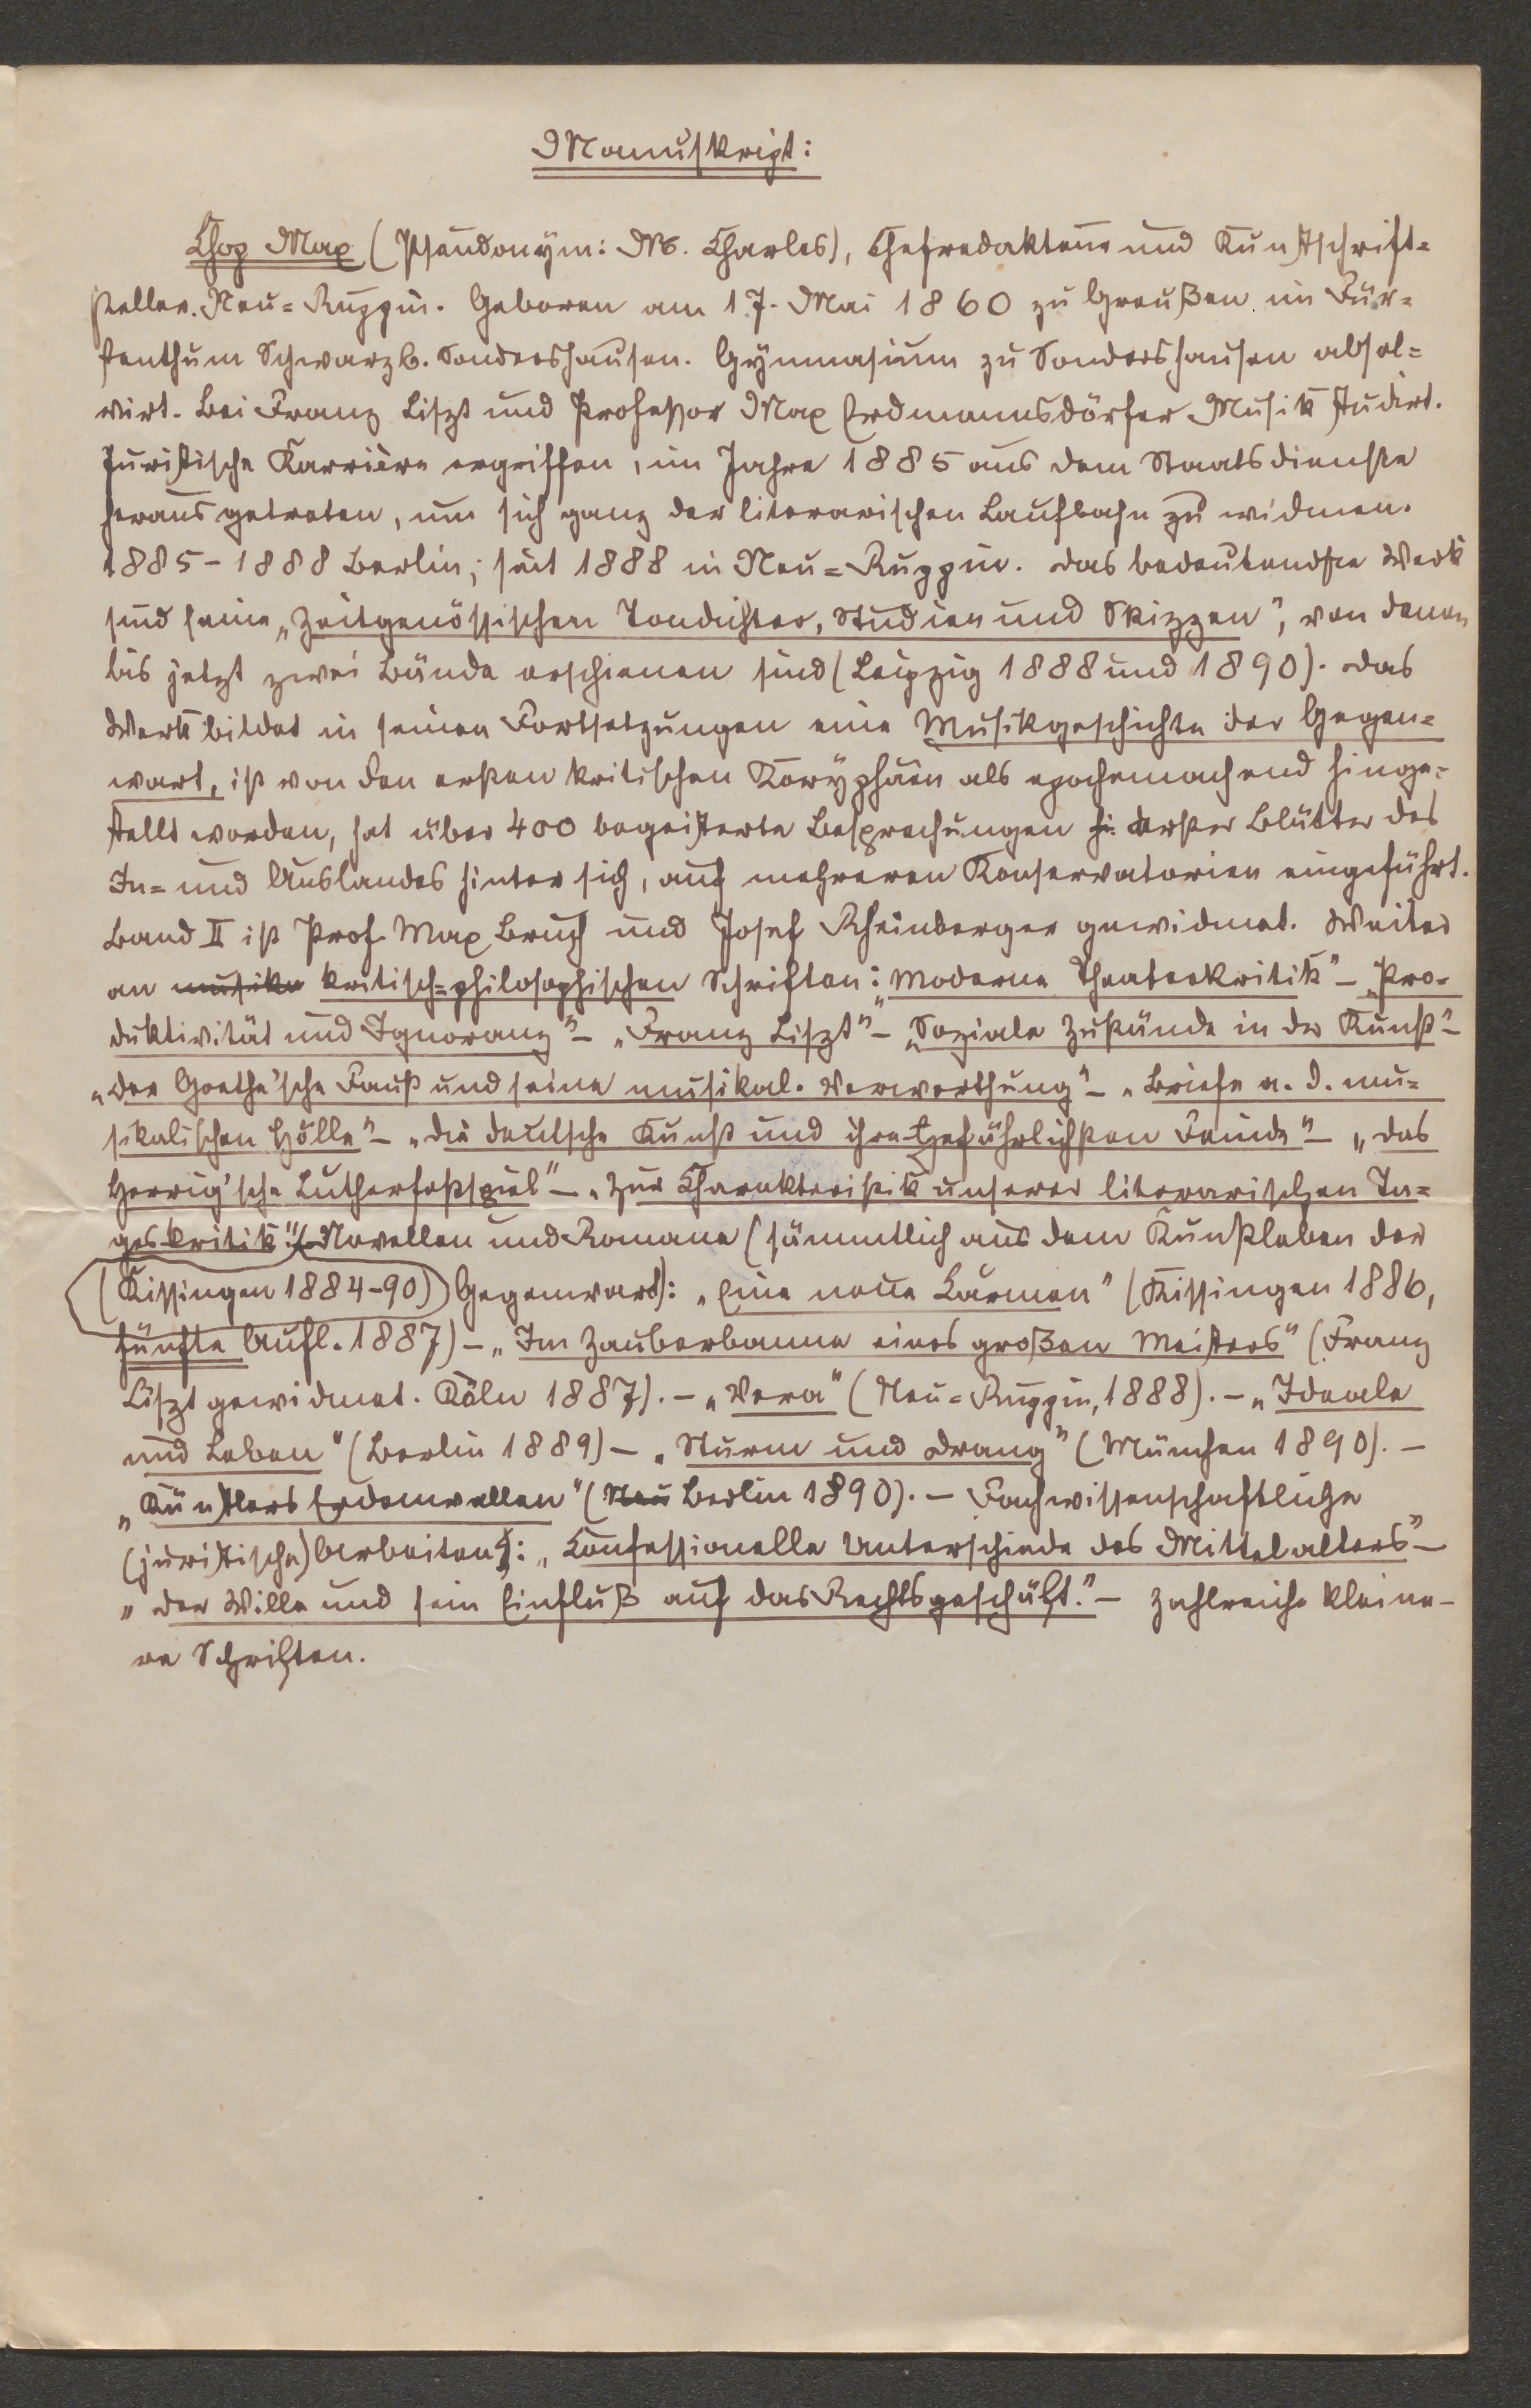 Manuskript:
Chop Max (Pseudonym: M. Charles), Chefredakteur und Kunstschrift=
steller. Neu=Ruppin. Geboren am 17. Mai 1860 zu Greußen im Für=
stenthum Schwarzb. Sondershausen. Gymnasium zu Sondershausen absol=
virt. Bei Franz Liszt und Professor Max Erdmannsdörfer Musik studirt.
Juristische Karrière ergriffen, im Jahre 1885 aus dem Staatsdienste
herausgetreten, um sich ganz der literarischen Laufbahn zu widmen.
1885-1888 Berlin; seit 1888 in Neu=Ruppin. Das bedeutendste Werk
sind seine „Zeitgenössischen Tondichter, Studien und Skizzen", von denen
bis jetzt zwei Bände erschienen sind (Leipzig 1888 und 1890). Das
Werk bildet in seinen Fortsetzungen eine Musikgeschichte der Gegen=
wart, ist von den ersten kritischen Koryphäen als epochemachend hinge=
stellt worden, hat über 400 begeisterte Besprechungen erster Blätter des
In= und Auslandes hinter sich, auch mehreren Konservatorien eingeführt.
Band II ist Prof. Max Bruch und Josef Rheinberger gewidmet. Weiter
an musika kritisch=philosophischen Schriften: „Moderne Theaterkritik" – „Pro=
duktivität und Ignoranz" – „Franz Liszt" – „Soziale Zustände in der Kunst" –
„Der Goethe'sche Faust und seine musikal. Verwerthung" – „Briefe a. d. mu=
sikalischen Hölle" – „Die deutsche Kunst und ihre gefährlichsten Feinde" – „Das
Herrig'sche Lutherfestspiel" – „Zur Charakteristik unserer literarischen Ta=
geskritik". Novellen und Romane (sämmtlich aus dem Kunstleben der
(Kissingen 1884-90) Gegenwart): „Eine neue Carmen" (Kissingen 1886,
fünfte Aufl. 1887) – „Im Zauberbanne eines großen Meisters" (Franz
Liszt gewidmet. Köln 1887). – „Vera" (Neu=Ruppin, 1888). – „Ideale
und Leben" (Berlin 1889) – „Sturm und Drang" (München 1890). –
„Künstlers Erdenwallen" (Neu Berlin 1890). – Fachwissenschaftliche
(juristische) Arbeiten: „Confessionelle Unterschiede des Mittelalters" –
„Der Wille und sein Einfluß auf das Rechtsgeschäft." – Zahlreiche kleine-
re Schriften.